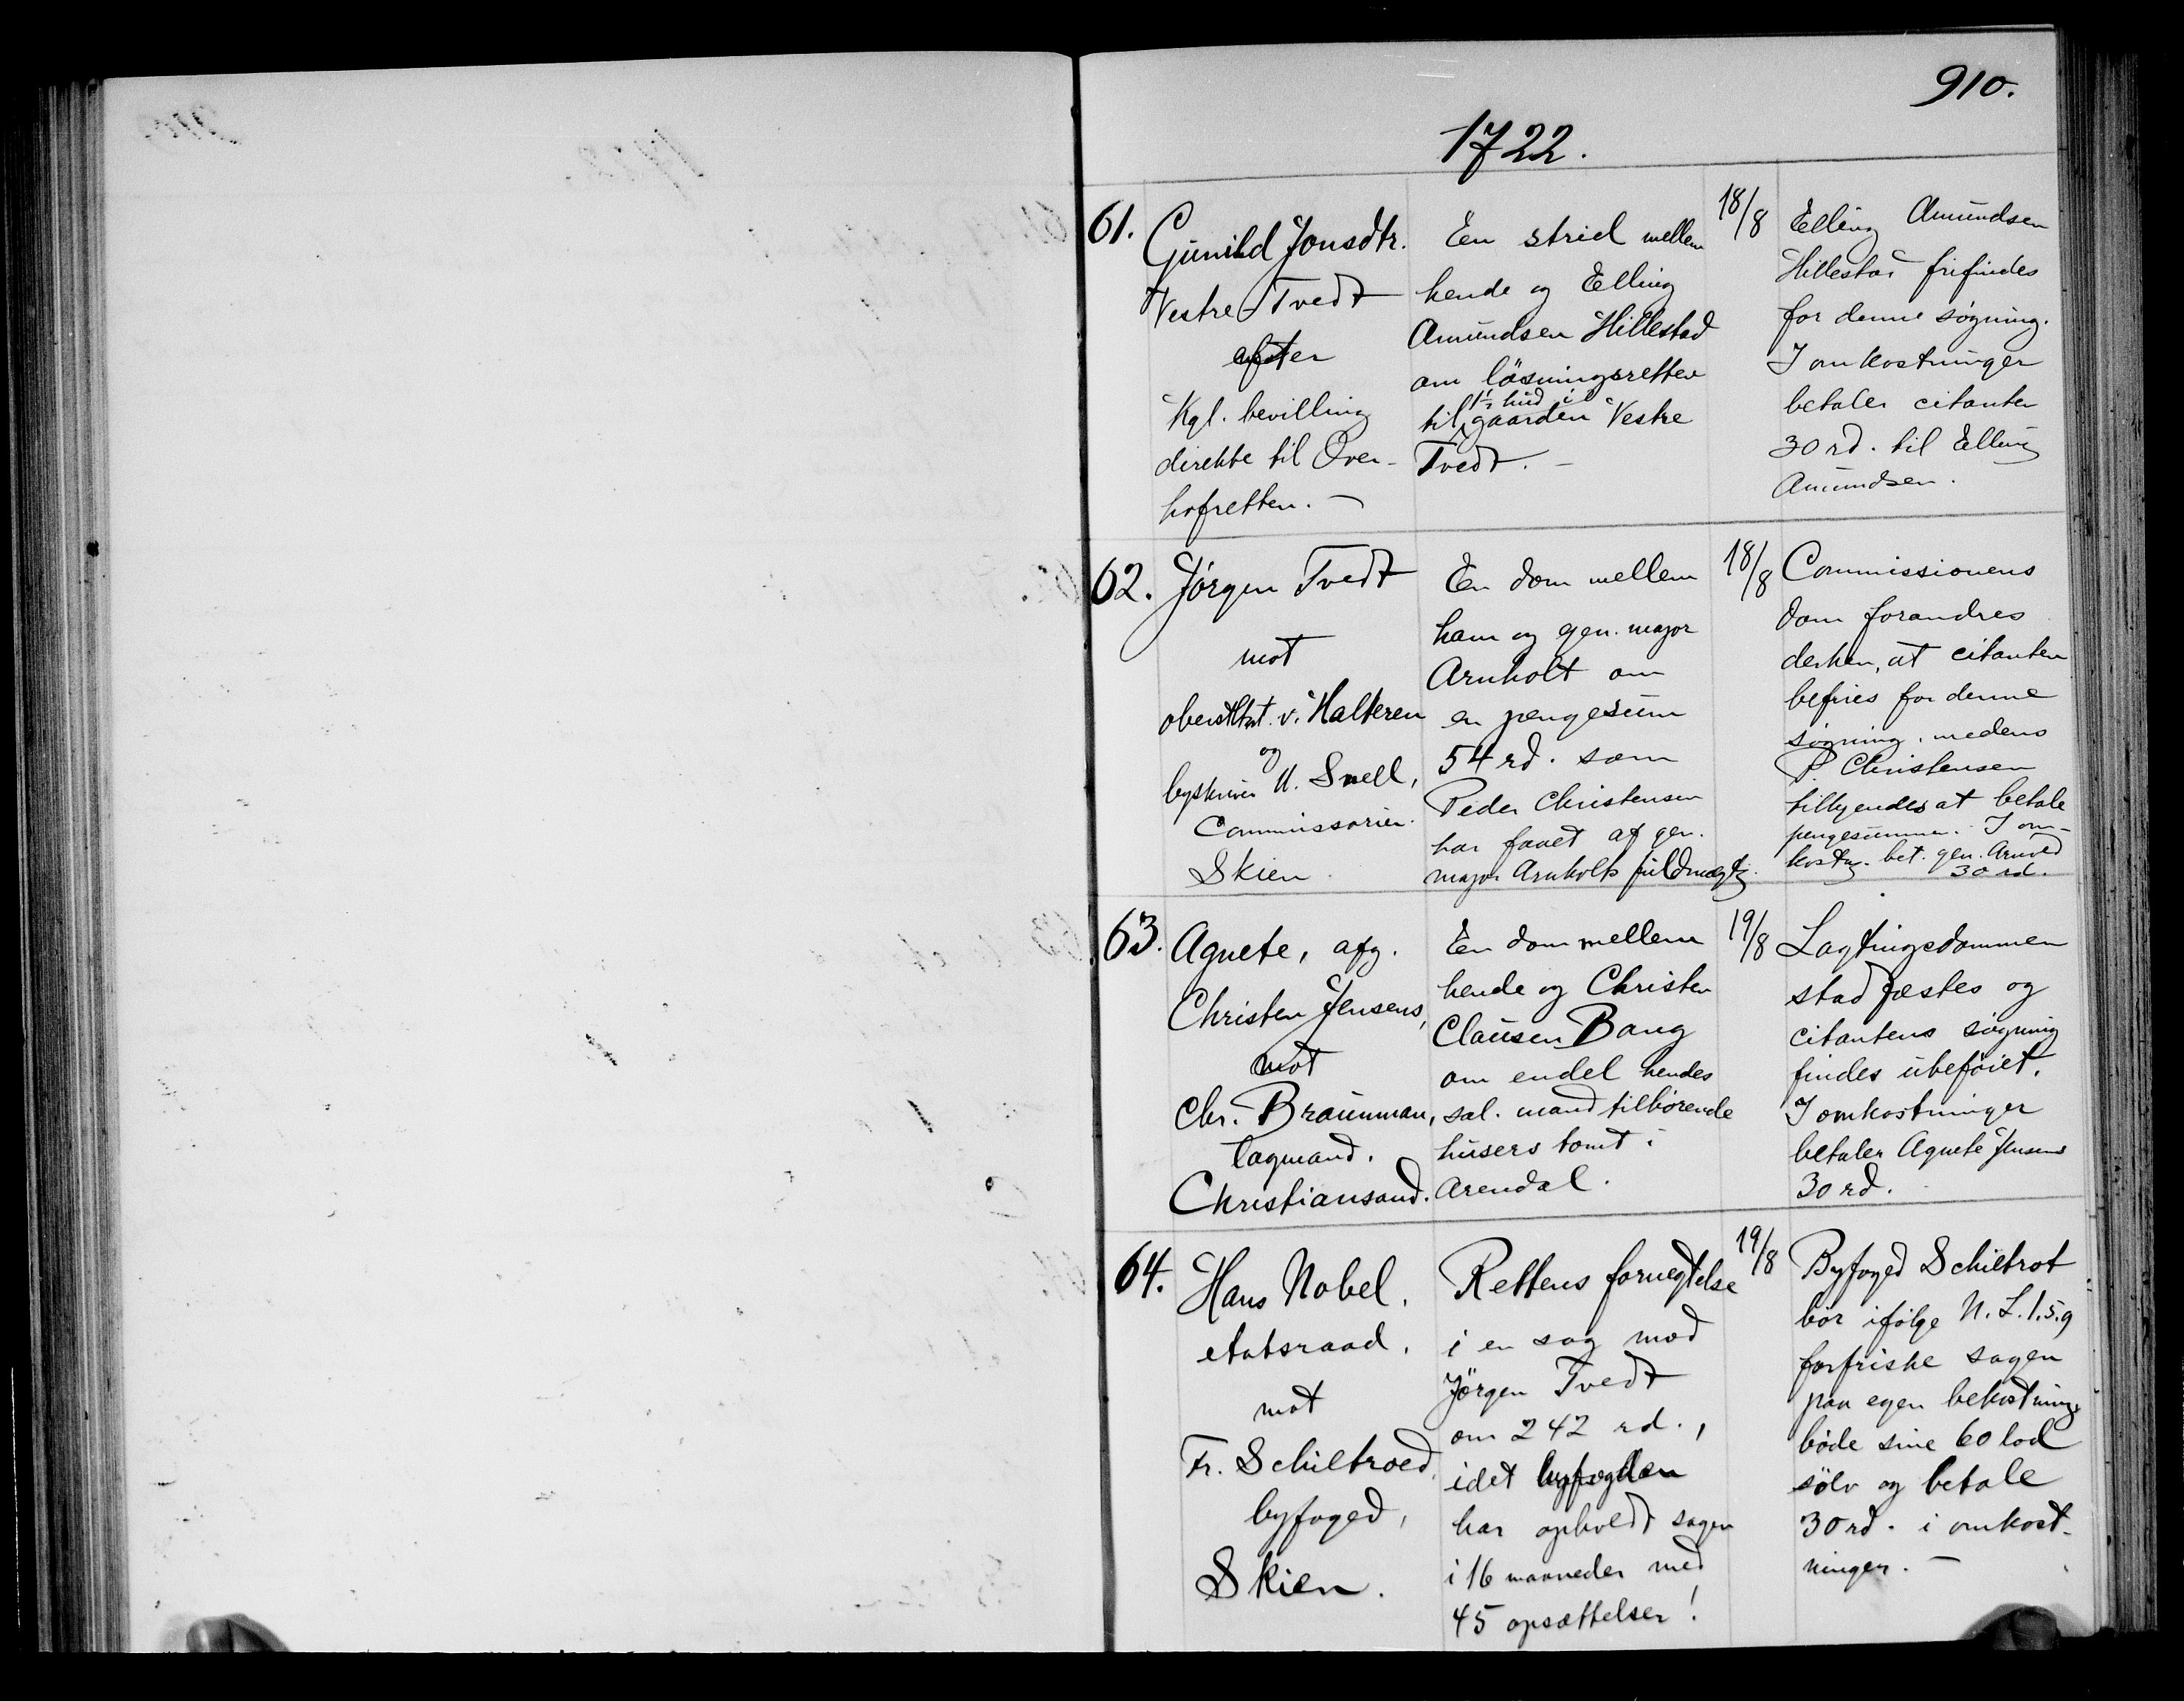 910.
1722.
61.
Gunild Jonsdtr.
Vestre Tvedt
efter
Kgl. bevilling
direkte til Over-
hofretten. —
En strid mellem
hende og Elling
Amundsen Hillestad
om løsningsretten
1½ hud i
til gaarden Vestre
Tvedt. —
18/8
Elling Amundsen
Hillestad frifindes
for denne søgning.
I omkostninger
betaler citanten
30 rd. til Elling
Amundsen.
62.
Jörgen Tvedt
mot
oberstltnt. v. Halteren
og
byskriver N. Snell,
Commissarier.
Skien
En dom mellem
ham og gen. major
Arnholt om
en pengesum
54 rd. som
Peder Christensen
har faaet af gen.
major Arnholts fuldmægtig.
18/8
Commissionens
dom forandres
derhen, at citanten
befries for denne
søgning, medens
P Christensen
tilkjendes at betale
pengesummen. I om-
kostng. bet. gen. Arnold
30 rd.
63.
Agnete, afg.
Christen Jensens,
mot
Chr. Braunman,
lagmand.
Christiansand.
En dom mellem
hende og Christen
Clausen Bang
om endel hendes
sal. mand tilhørende
husers tomt i
Arendal.
19/8
Lagtingsdommen
stadfæstes og
citantens søgning
findes ubeføiet.
I omkostninger
betaler Agnete Jensens
30 rd.
64.
Hans Nobel,
etatsraad,
mot
Fr. Schiltroed,
byfoged,
Skien.
Rettens fornegtelse
i en sag mod
Jörgen Tvedt
om 242 rd.,
idet byfogden
har opholdt sagen
i 16 maaneder med
45 opsættelser!
19/8
Byfoged Schiltrot
bör ifölge N. L. 1.5.9
forfriske sagen
paa egen bekostning,
bøde sine 60 lod
sölv og betale
30 rd. i omkost-
ninger. —